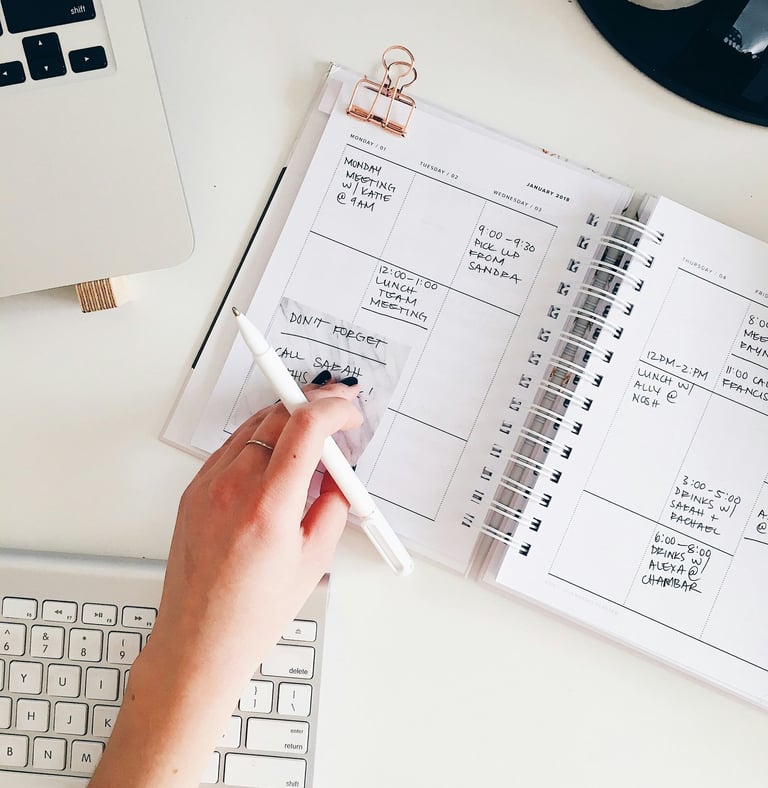 shift
MONDAY / 01
TUESDAY / 02
WEDNESDAY / 03
JANUARY 2018
MONDAY
MEETING
W/ KATIE
@ 9AM
9:00 - 9:30
PICK UP
FROM
SANDRA
12:00-1:00
LUNCH
TEAM
MEETING
DON'T FORGET
CALL SARAH
!
THURSDAY / 04
12PM-2PM
LUNCH W/
ALLY @
NOSH
8:00
11:00
3:00-5:00
DRINKS W/
SARAH +
RACHAEL
6:00-8:00
DRINKS W/
ALEXA @
CHAMBAR
^ 6
& 7
* 8
( 9
delete
Y
U
I
}
]
|
\
H
J
K
enter
return
B
N
M
shift